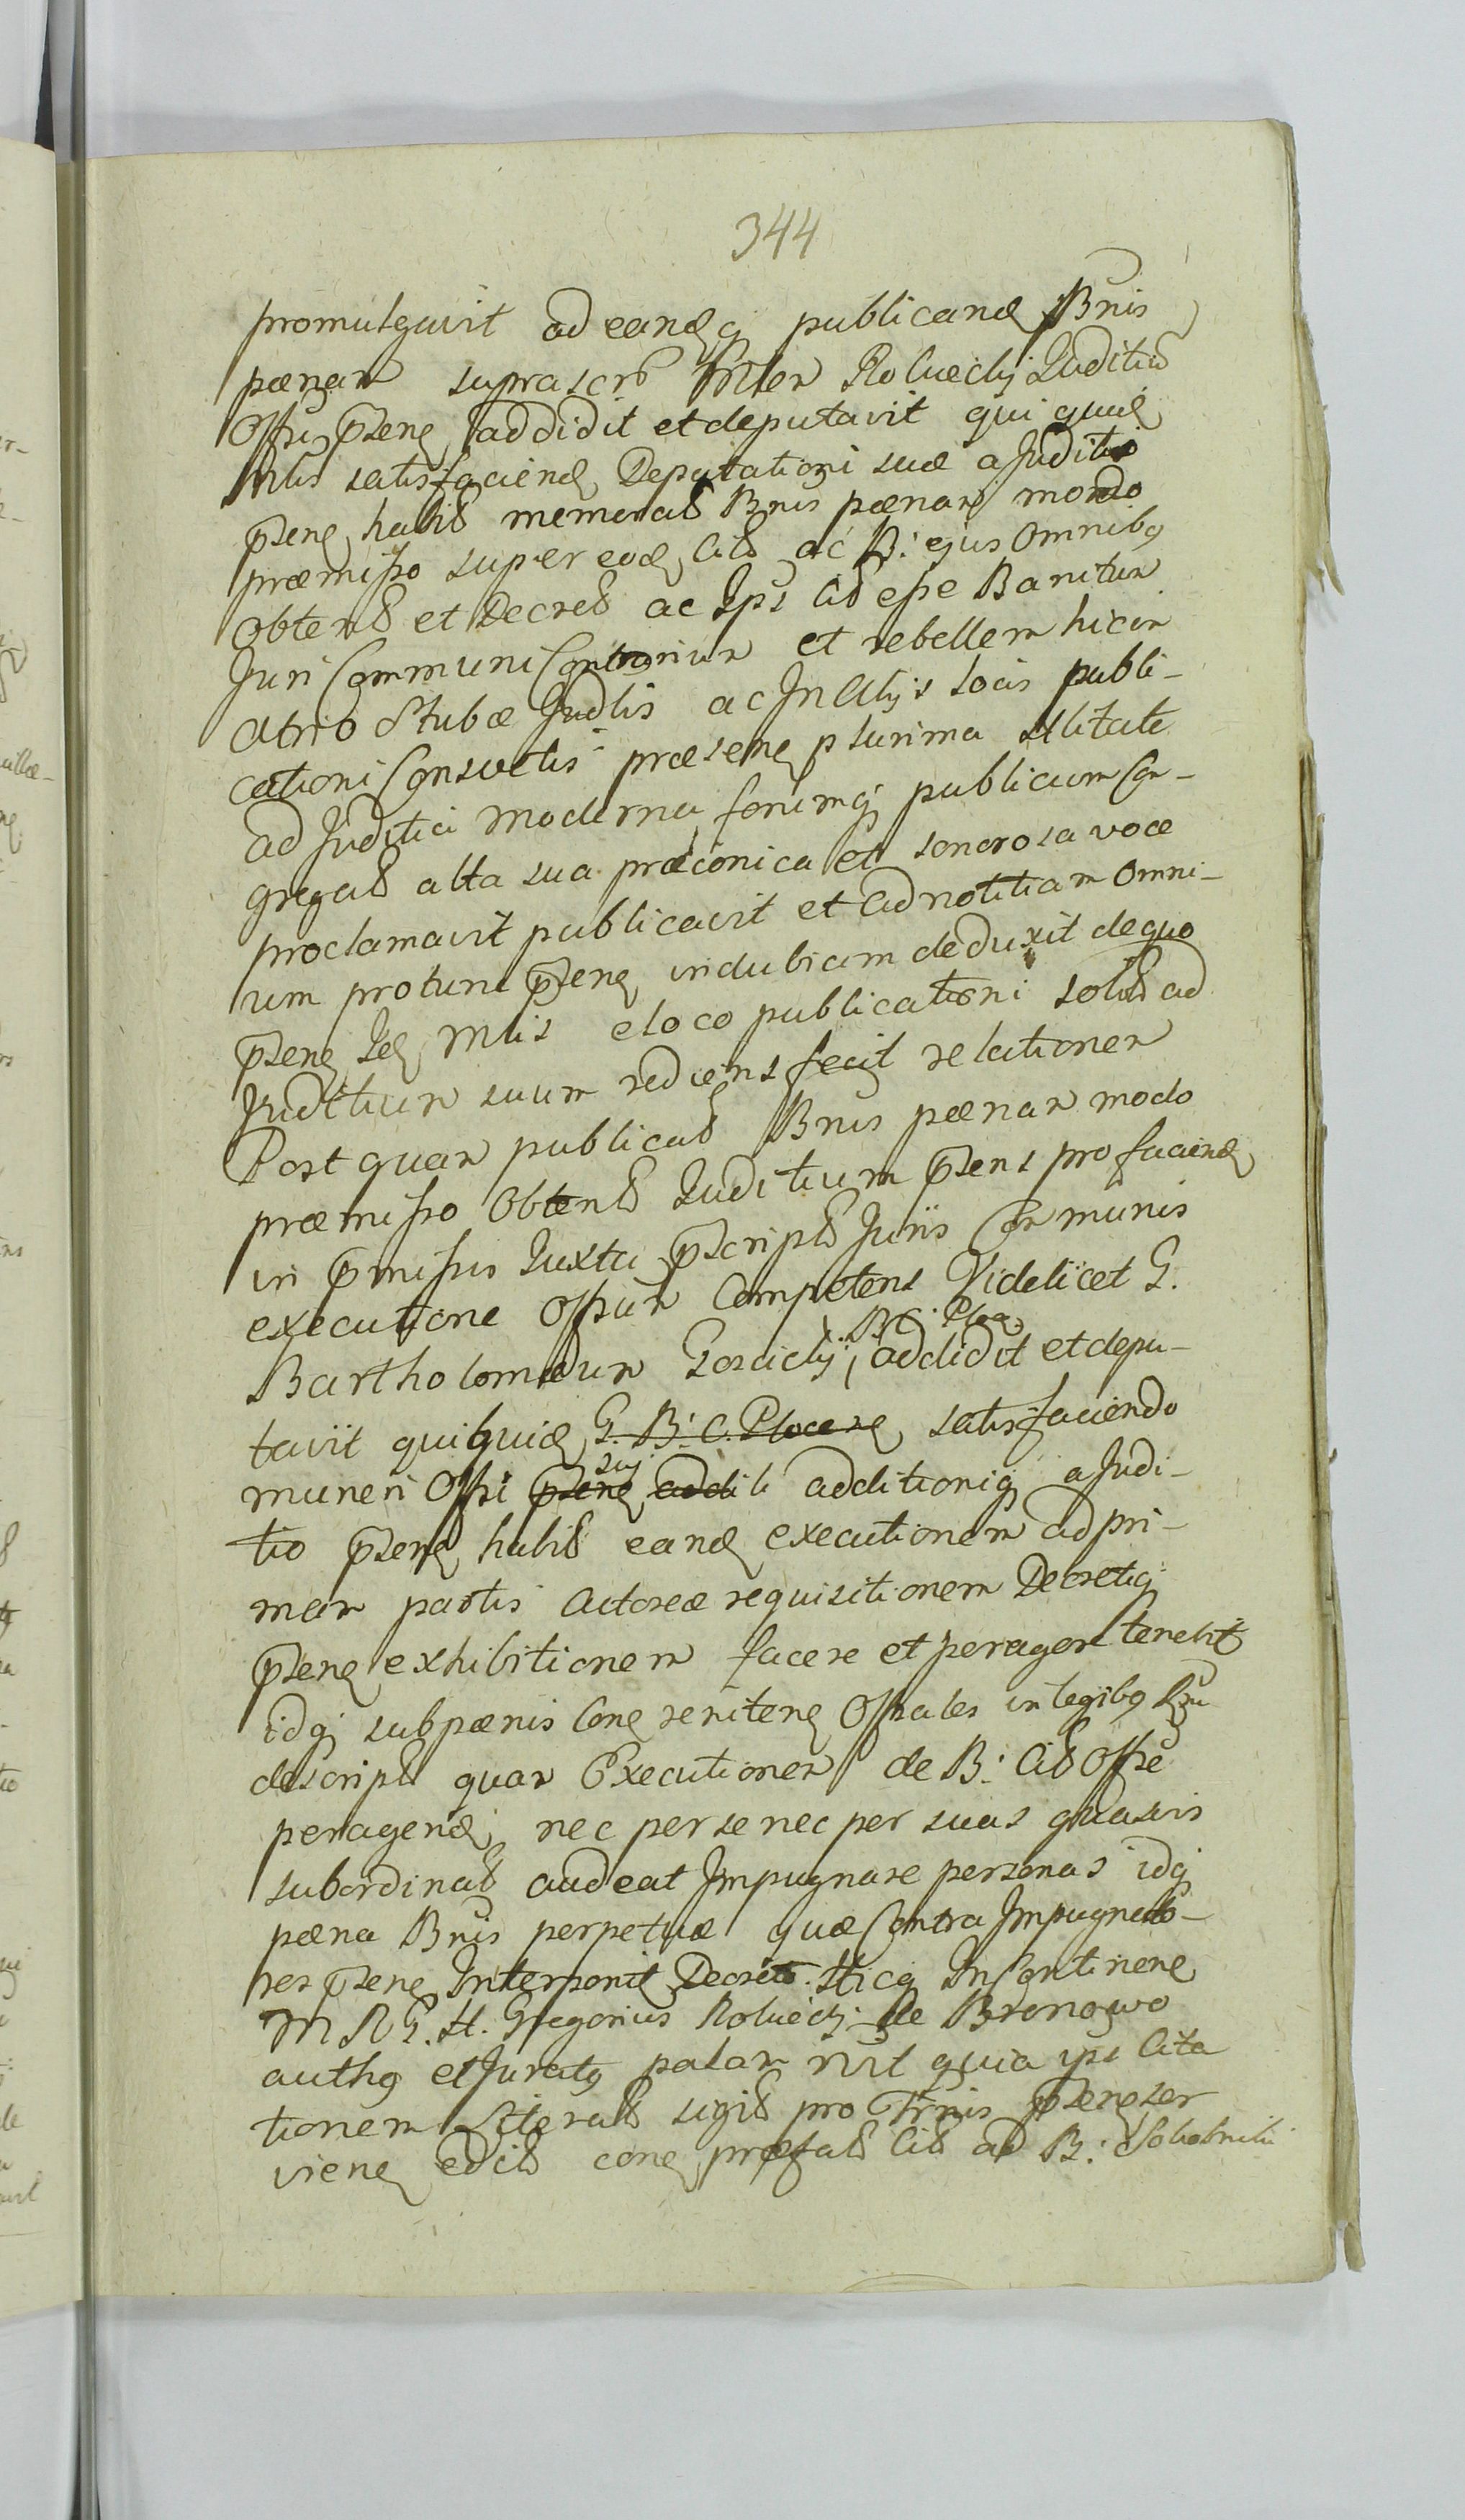 344
promulgavit ad eandq publicand Bnis
pœnam suprascr Mlem Roluecky Juditiū
Offu pseng addidit et deputavit qui quid
Mlis satisfaciend Deputationi suæ a Juditio
pseng habit memorat Bnis pœnam modo
præmisso super eod Cit ac B: ejus omnibq
obtent et Decret ac Ips Cit esse Banitum
Juri Communi Contrarium et rebellem hic in
Atrio Stubæ Judlis ac In Alijs locis publi-
cationi Consuetis præseng plurima Nlitate
ad Juditia moderna forumq publicum Con-
gregat alta sua præconica et sonorosa voce
proclamavit publicavit et Ad notitiam omni-
um pro tunc pseng indubiam deduxit de quo
pseng Id Mlis e loco publicationi solit ad
Juditium suum rediens fecit relationem
Post quam publicat Bnis pœnam modo
præmisso obtent Juditium psens pro faciend
in pmissis Juxta pscript Juris Communis
executione Offium Competens Videlicet G.
B: C: Ploc
Bartholomæum Gosicky addidit et depu-
tavit qui quid G. B: C. Plocens satisfaciendo
suj
muneri Offi pseng additi additioniq a Judi-
tio pseng habit eand executionem ad pri-
mam partis Actoreæ requisitionem Decretiq
pseng exhibitionem facere et peragere tenebit
idq sub pœnis Cong reniteng Offiales in legibq
descript quam Executionem de B: Cit Offse
peragend nec per se nec per suas quasvis
subordinat audeat Impugnare personas idq
pœna Bnis perpetuæ quæ Contra Impugnato-
res pseng Interponit Decreto. Hicq In Contineng
M R G. H. Gregorius Roluecky de Bronowo
authq et Juratq palam rvit quia ips Cita
tionem Literat sigit pro Trnis pseng ser
vieng edit cong præfat Cit ad B: